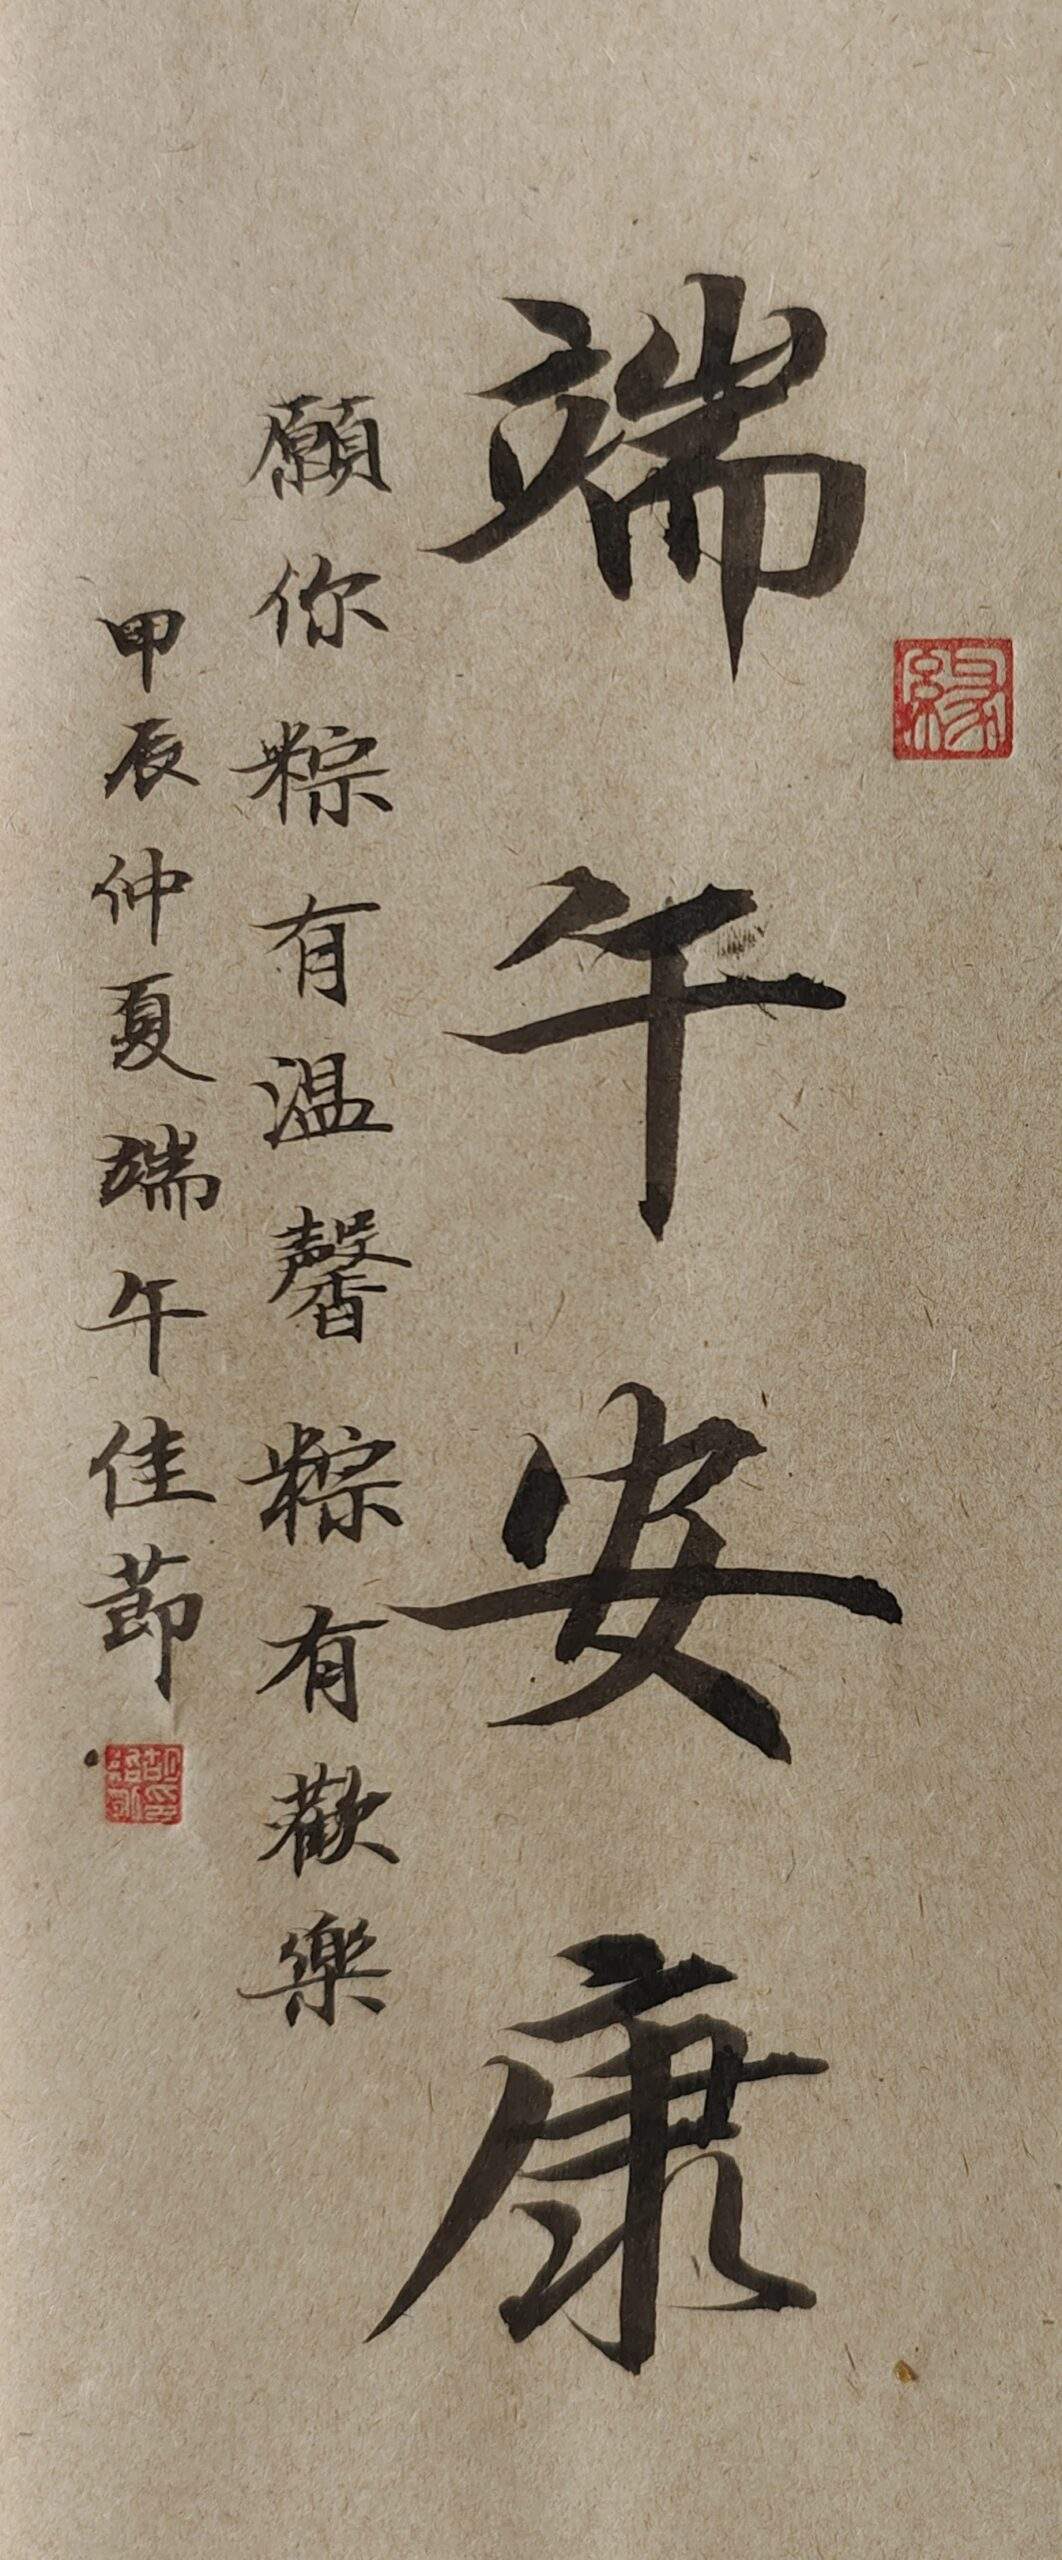 端午安康
願你粽有温馨粽有歡樂
甲辰仲夏端午佳節